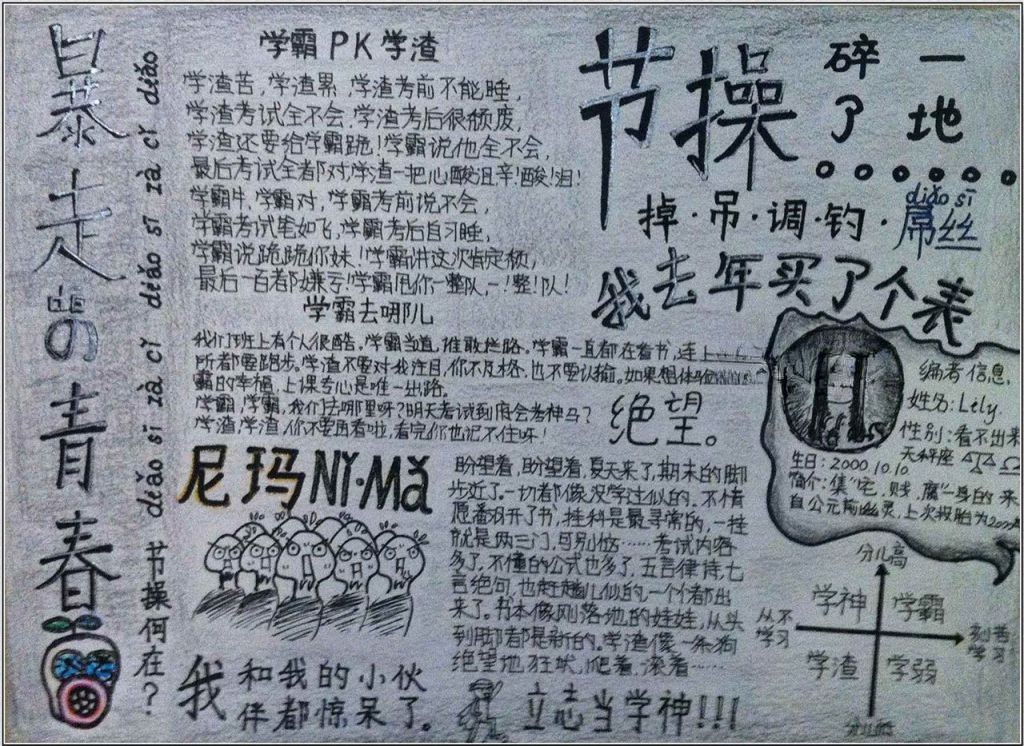 暴走的青春
diǎo sī zà cī diǎo sī zà cī diǎo
节操何在？
学霸PK学渣
学渣苦，学渣累，学渣考前不能睡，
学渣考试全不会，学渣考后很颓废，
学渣还要给学霸跪！学霸说他全不会，
最后考试全都对，学渣一把心酸泪，辛！酸！泪！
学霸牛，学霸对，学霸考前说不会，
学霸考试笔如飞，学霸考后自习睡，
学霸说跪跪你妹！学霸讲这次肯定栽，
最后一百都嫌亏！学霸甩你一整队，一！整！队！
学霸去哪儿
我们班上有个人很酷。学霸当道，谁敢拦路。学霸一直都在看书，连上
所都要跑步。学渣不要对我注目，你不及格，也不要认输。如果想体验
霸的幸福，上课专心是唯一出路。
学霸，学霸，我们去哪里呀？明天考试到底会考神马？
学渣，学渣，你不要再看啦，看完你也记不住呀！
绝望。
节操碎了一地
掉·吊·调·钓·屌丝
diǎo sī
我去年买了个表
编者信息，
姓名：Lily.
性别：看不出来
天秤座
生日：2000.10.10
简介：集“宅，贱，腐”一身的
来自公元前幽灵，上次投胎为
尼玛Nǐ·Mǎ
盼望着，盼望着，夏天来了，期末的脚
步近了。一切都像没学过似的，不情
愿翻开了书，挂科是最寻常的，一挂
就是两三门，可别恼……考试内容
多了，不懂的公式也多了，五言律诗，七
言绝句，也赶趟儿似的一个个都出
来了。书本像刚落地的娃娃，从头
到脚都是新的。学渣像一条狗
绝望地狂吠，爬着，滚着……
分儿高
从不学习
学神
学霸
刻苦学习
学渣
学弱
分儿低
我和我的小伙伴都惊呆了。
立志当学神!!!